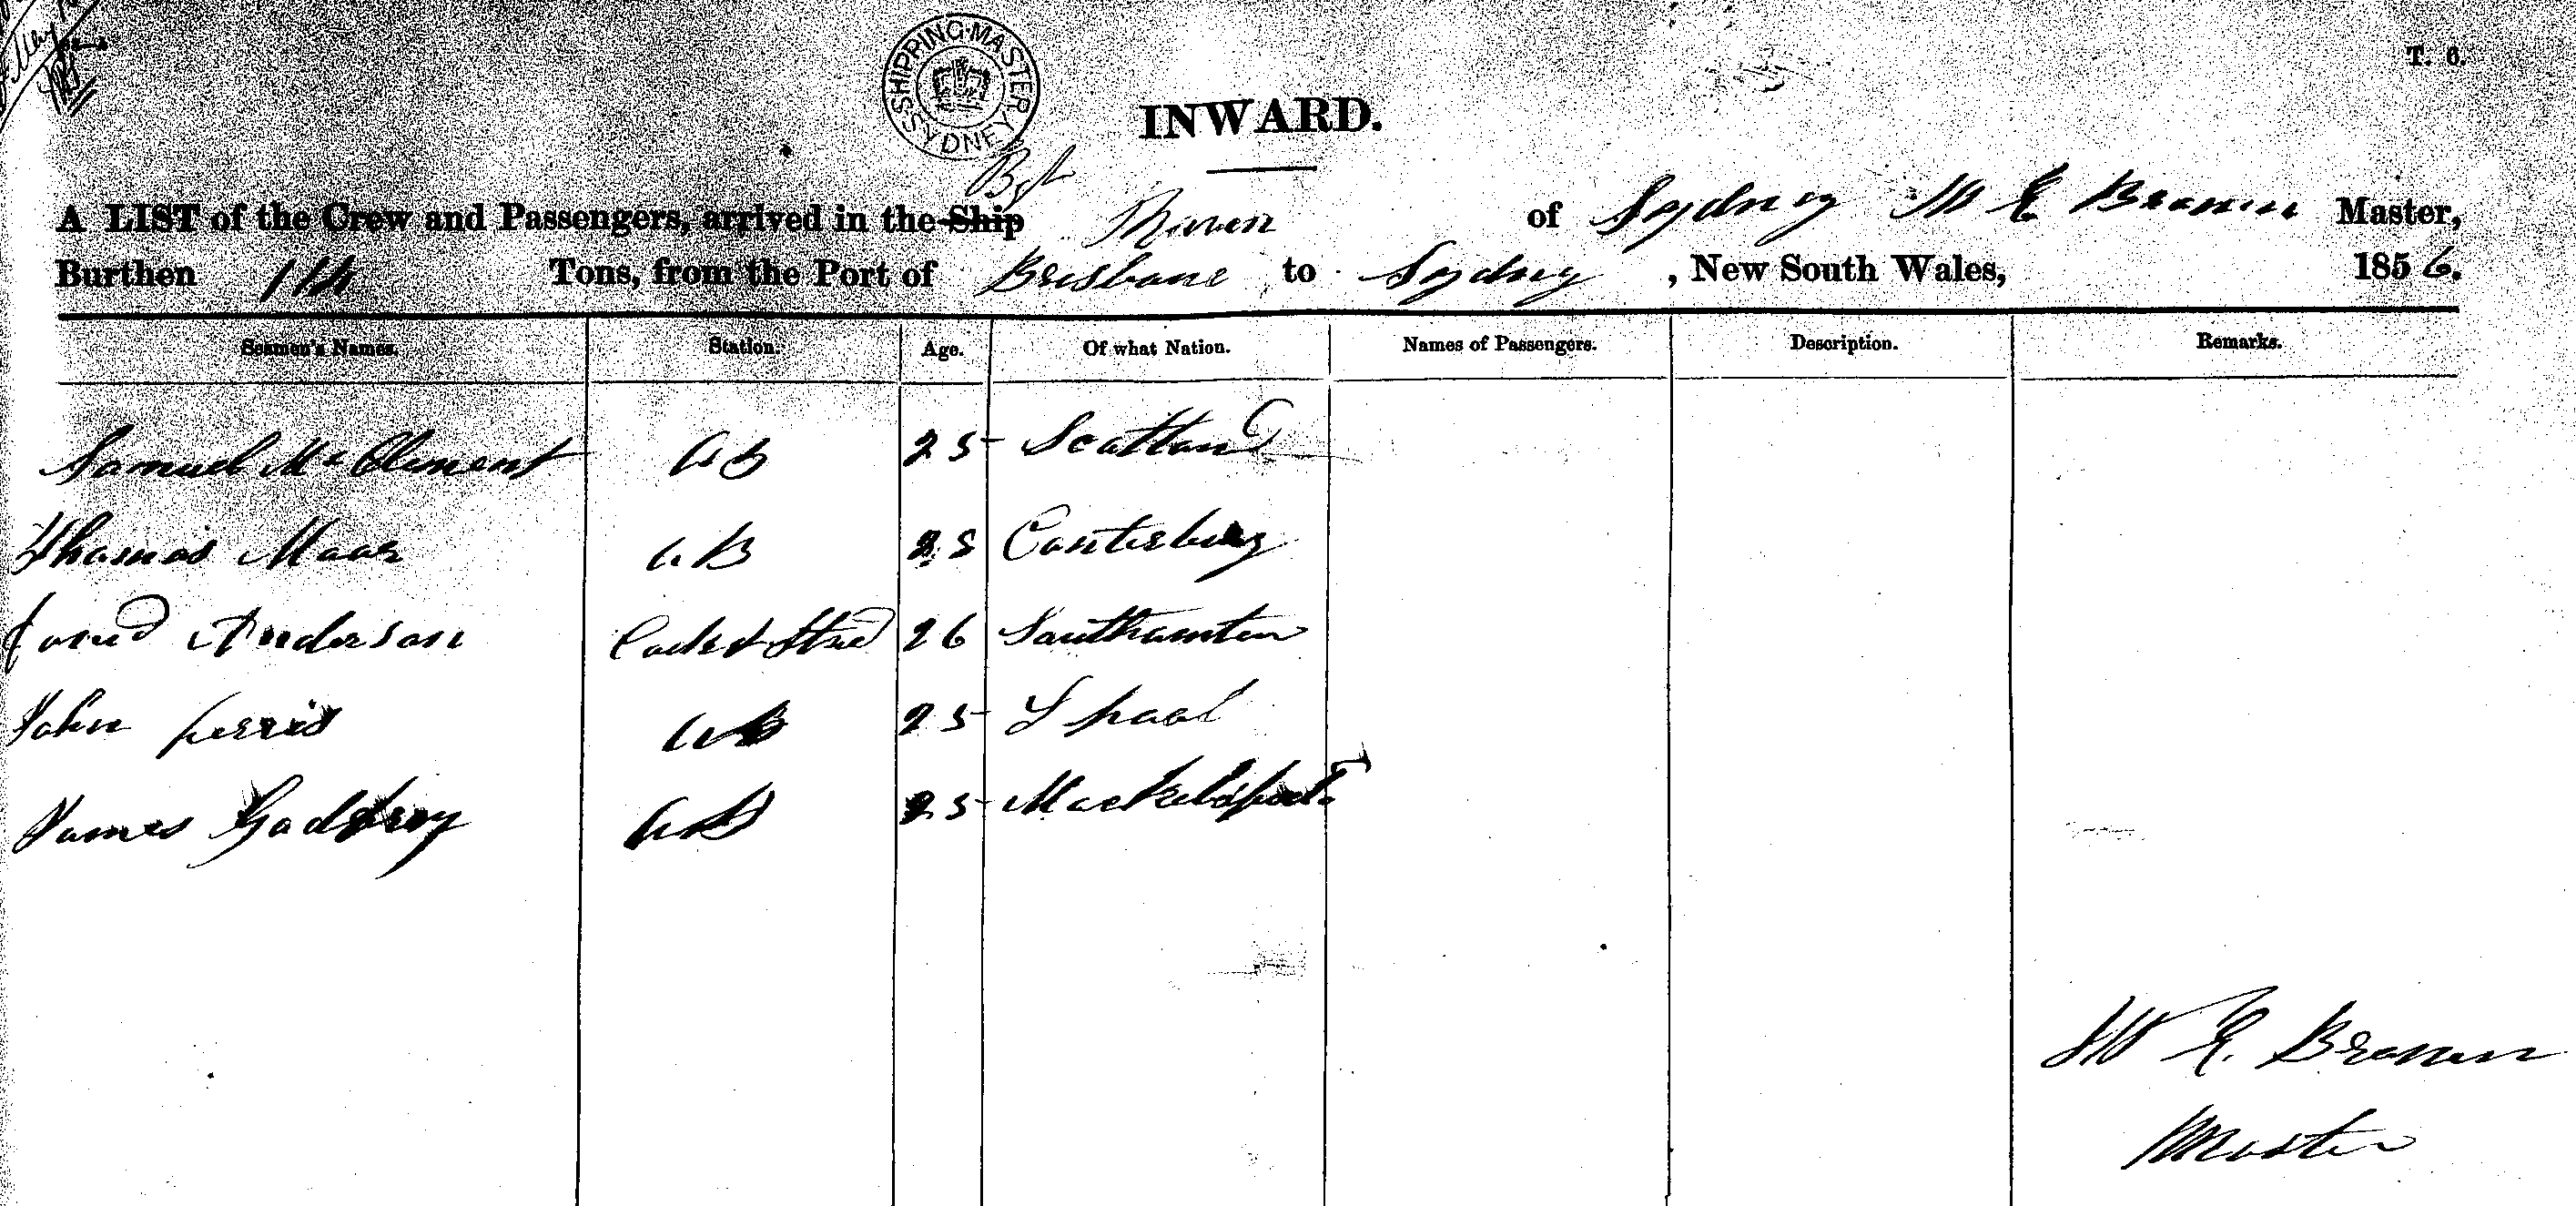 SHIPPING MASTER SYDNEY
T. 6.
INWARD.
A LIST of the Crew and Passengers, arrived in the Ship Raven of Sydney W E Brown Master,
Burthen 114 Tons, from the Port of Brisbane to Sydney, New South Wales, 1856.
Seamen's Names. Station. Age. Of what Nation. Names of Passengers. Description. Remarks.
Samuel McClement AB 25 Scotland
Thomas Moor AB 25 Canterbury
Anderson Cook & Stued 26 Southamton
John Ferris AB 25 Lpool
James Godfrey AB 25
W E. Brown
Master